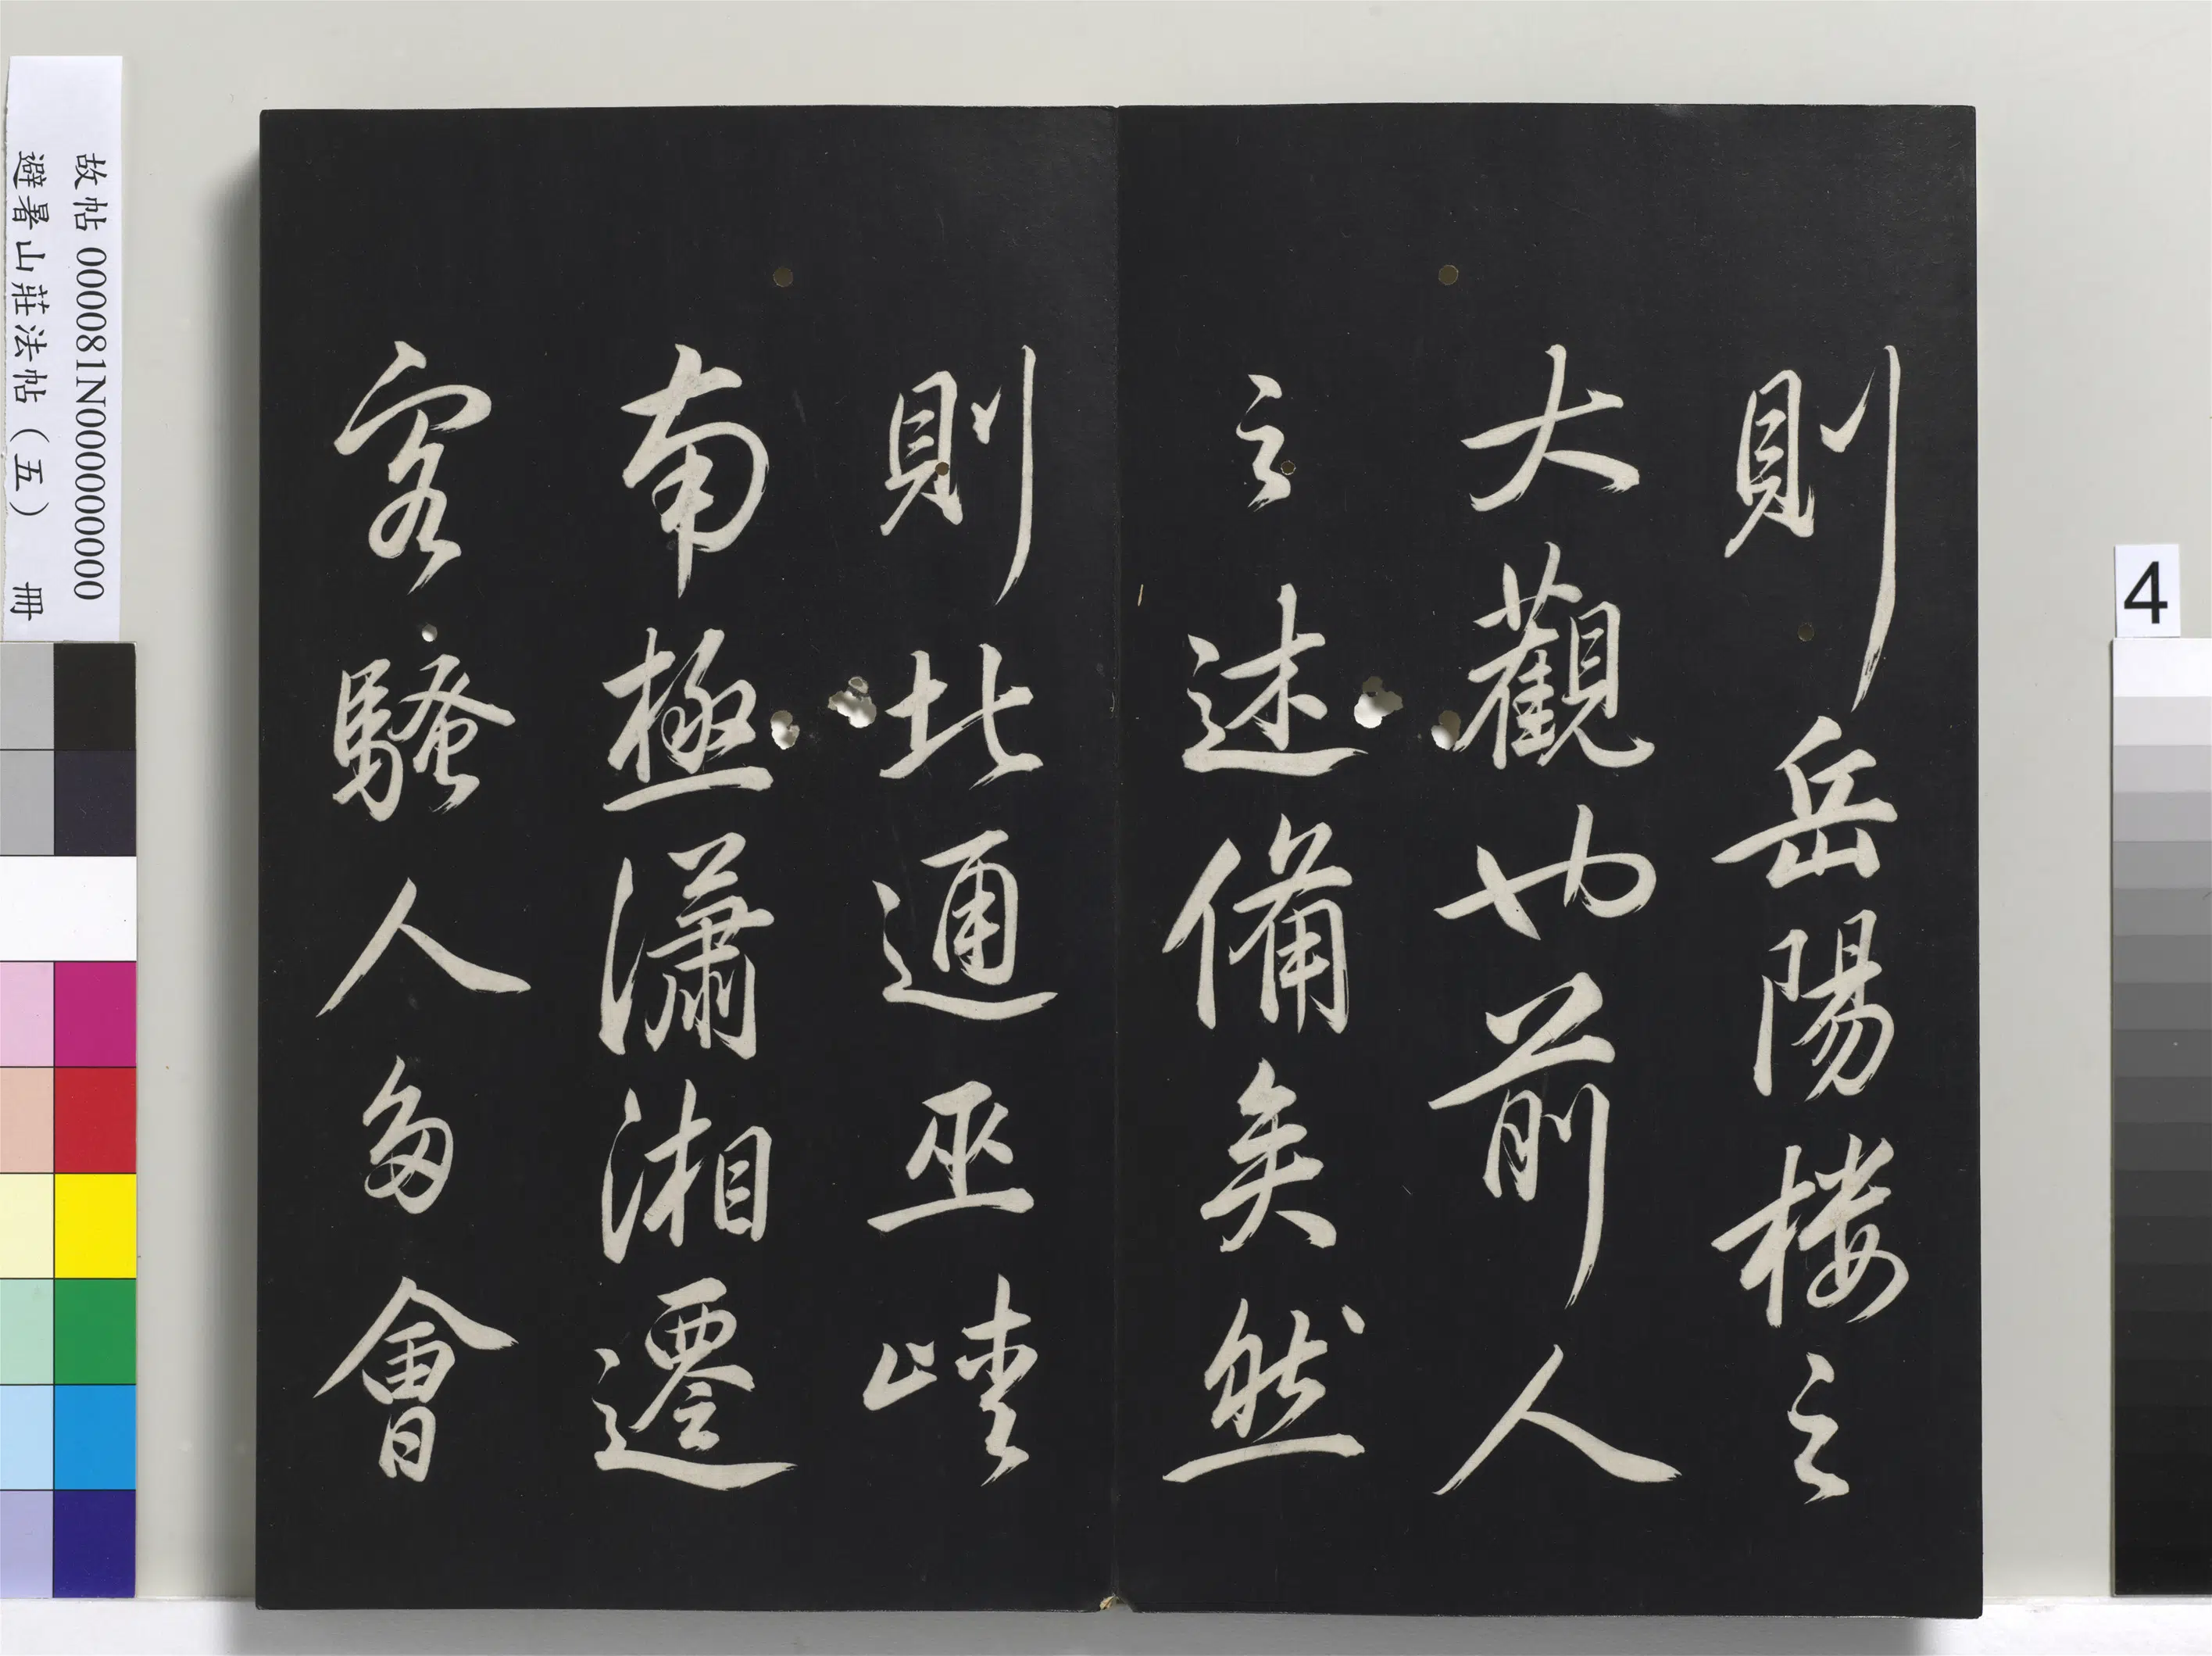 則岳陽楼之
大觀也前人
之述備矣然
則北通巫峡
南極瀟湘遷
客騷人多會
故帖 000081N000000000
避暑山莊法帖（五） 冊
4